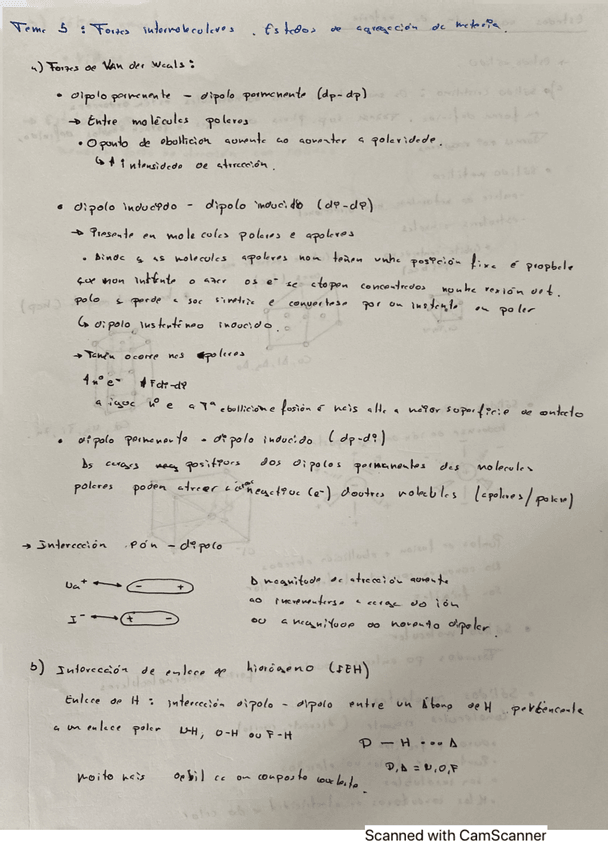 Tema 5 : Forzas intermoleculares. Estados de agregación da materia.
a) Forzas de Van der Waals:
• dipolo permanente - dipolo permanente (dp-dp)
→ Entre moléculas polares
• O punto de ebullición aumenta ao aumentar a polaridade.
↳ ↑ intensidade de atracción.
• dipolo inducido - dipolo inducido (di-di)
→ Presente en moléculas polares e apolares
• Ainda q as moléculas apolares non teñen unha posición fixa é probable
que nun instante o azar os e⁻ se atopen concentrados nunha rexión det.
polo q perde a súa simetría e convertese por un instante en polar
↳ dipolo instantáneo inducido.
→ Tamén ocorre nas apolares
↑ nº e⁻ ↑ Fdi-di
a igual nº e⁻ a Tª ebullición e fusión é máis alta a maior superficie de contacto
• dipolo permanente - dipolo inducido (dp-di)
As cargas positivas dos dipolos permanentes das moléculas
polares poden atraer a carga negativa (e⁻) doutras moléculas (apolares/polares)
→ Interacción ión - dipolo
Na⁺ ⟷ - +
A magnitude de atracción aumenta
ao incrementarse a carga do ión
I⁻ ⟷ + -
ou a magnitude do momento dipolar.
b) Interacción de enlace de hidróxeno (IEH)
Enlace de H : interacción dipolo - dipolo entre un átomo de H pertencente
a un enlace polar N-H, O-H ou F-H
D — H ···· A
D, A = N, O, F
moito máis débil ca un composto covalente.
Scanned with CamScanner